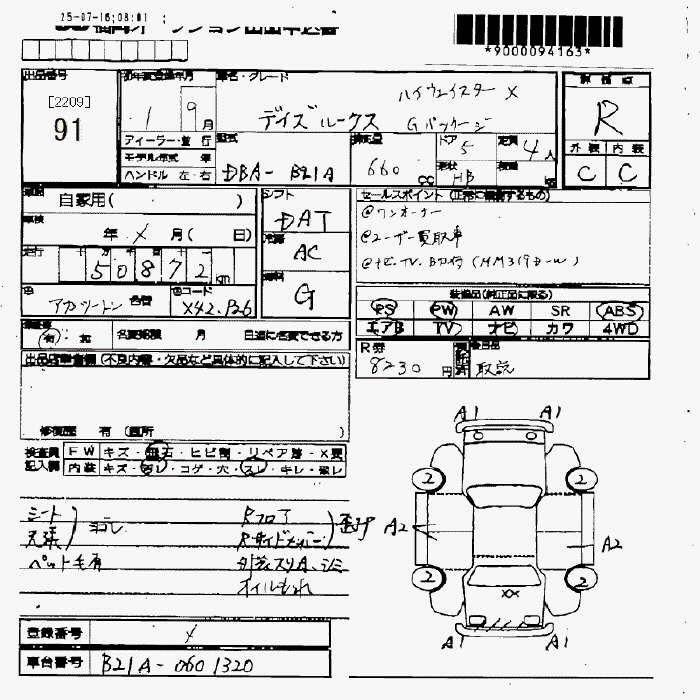 25-07-16;08:01
*9000094163*
出品番号
[2209]
91
初年度登録年月
1 9月
ディーラー・並行
モデル年式 年
ハンドル 左・右
車名・グレード
ハイウェイスター X
デイズルークス Gパッケージ
型式
DBA- B21A
排気量
660 cc
ドア
5
形状
HB
定員
4人
積載
kg
評価点
R
外装 内装
C C
車歴
自家用( )
車検
年 X 月( 日)
走行
50872 km
色
アカツートン 色替
色コード
X42.P26
シフト
DAT
冷房
AC
燃料
G
セールスポイント (正常に機能するもの)
@ワンオーナー
@ユーザー買取車
@ナビ.TV.B付 (MM319D-W)
装備品(純正品に限る)
PS PW AW SR ABS
エアB TV ナビ カワ 4WD
R券
8230 円
後日品
取説
有・無 名変期限 月 日迄に名変できる方
出品店申告欄 (不良内容・欠品など具体的に記入して下さい)
修復歴 有 (箇所 )
検査員記入欄
FW キズ・飛石・ヒビ割・リペア跡・X要
内装 キズ・汚レ・コゲ・穴・スレ・キレ・破レ
シート
天張 ヨゴレ
ペット毛有
Rフロア
R.サイドメンバー 歪み
オイルもれ
A1 A1
2 2
A2 A2
2 2
XX
A1 A1
登録番号 X
車台番号 B21A-0601320